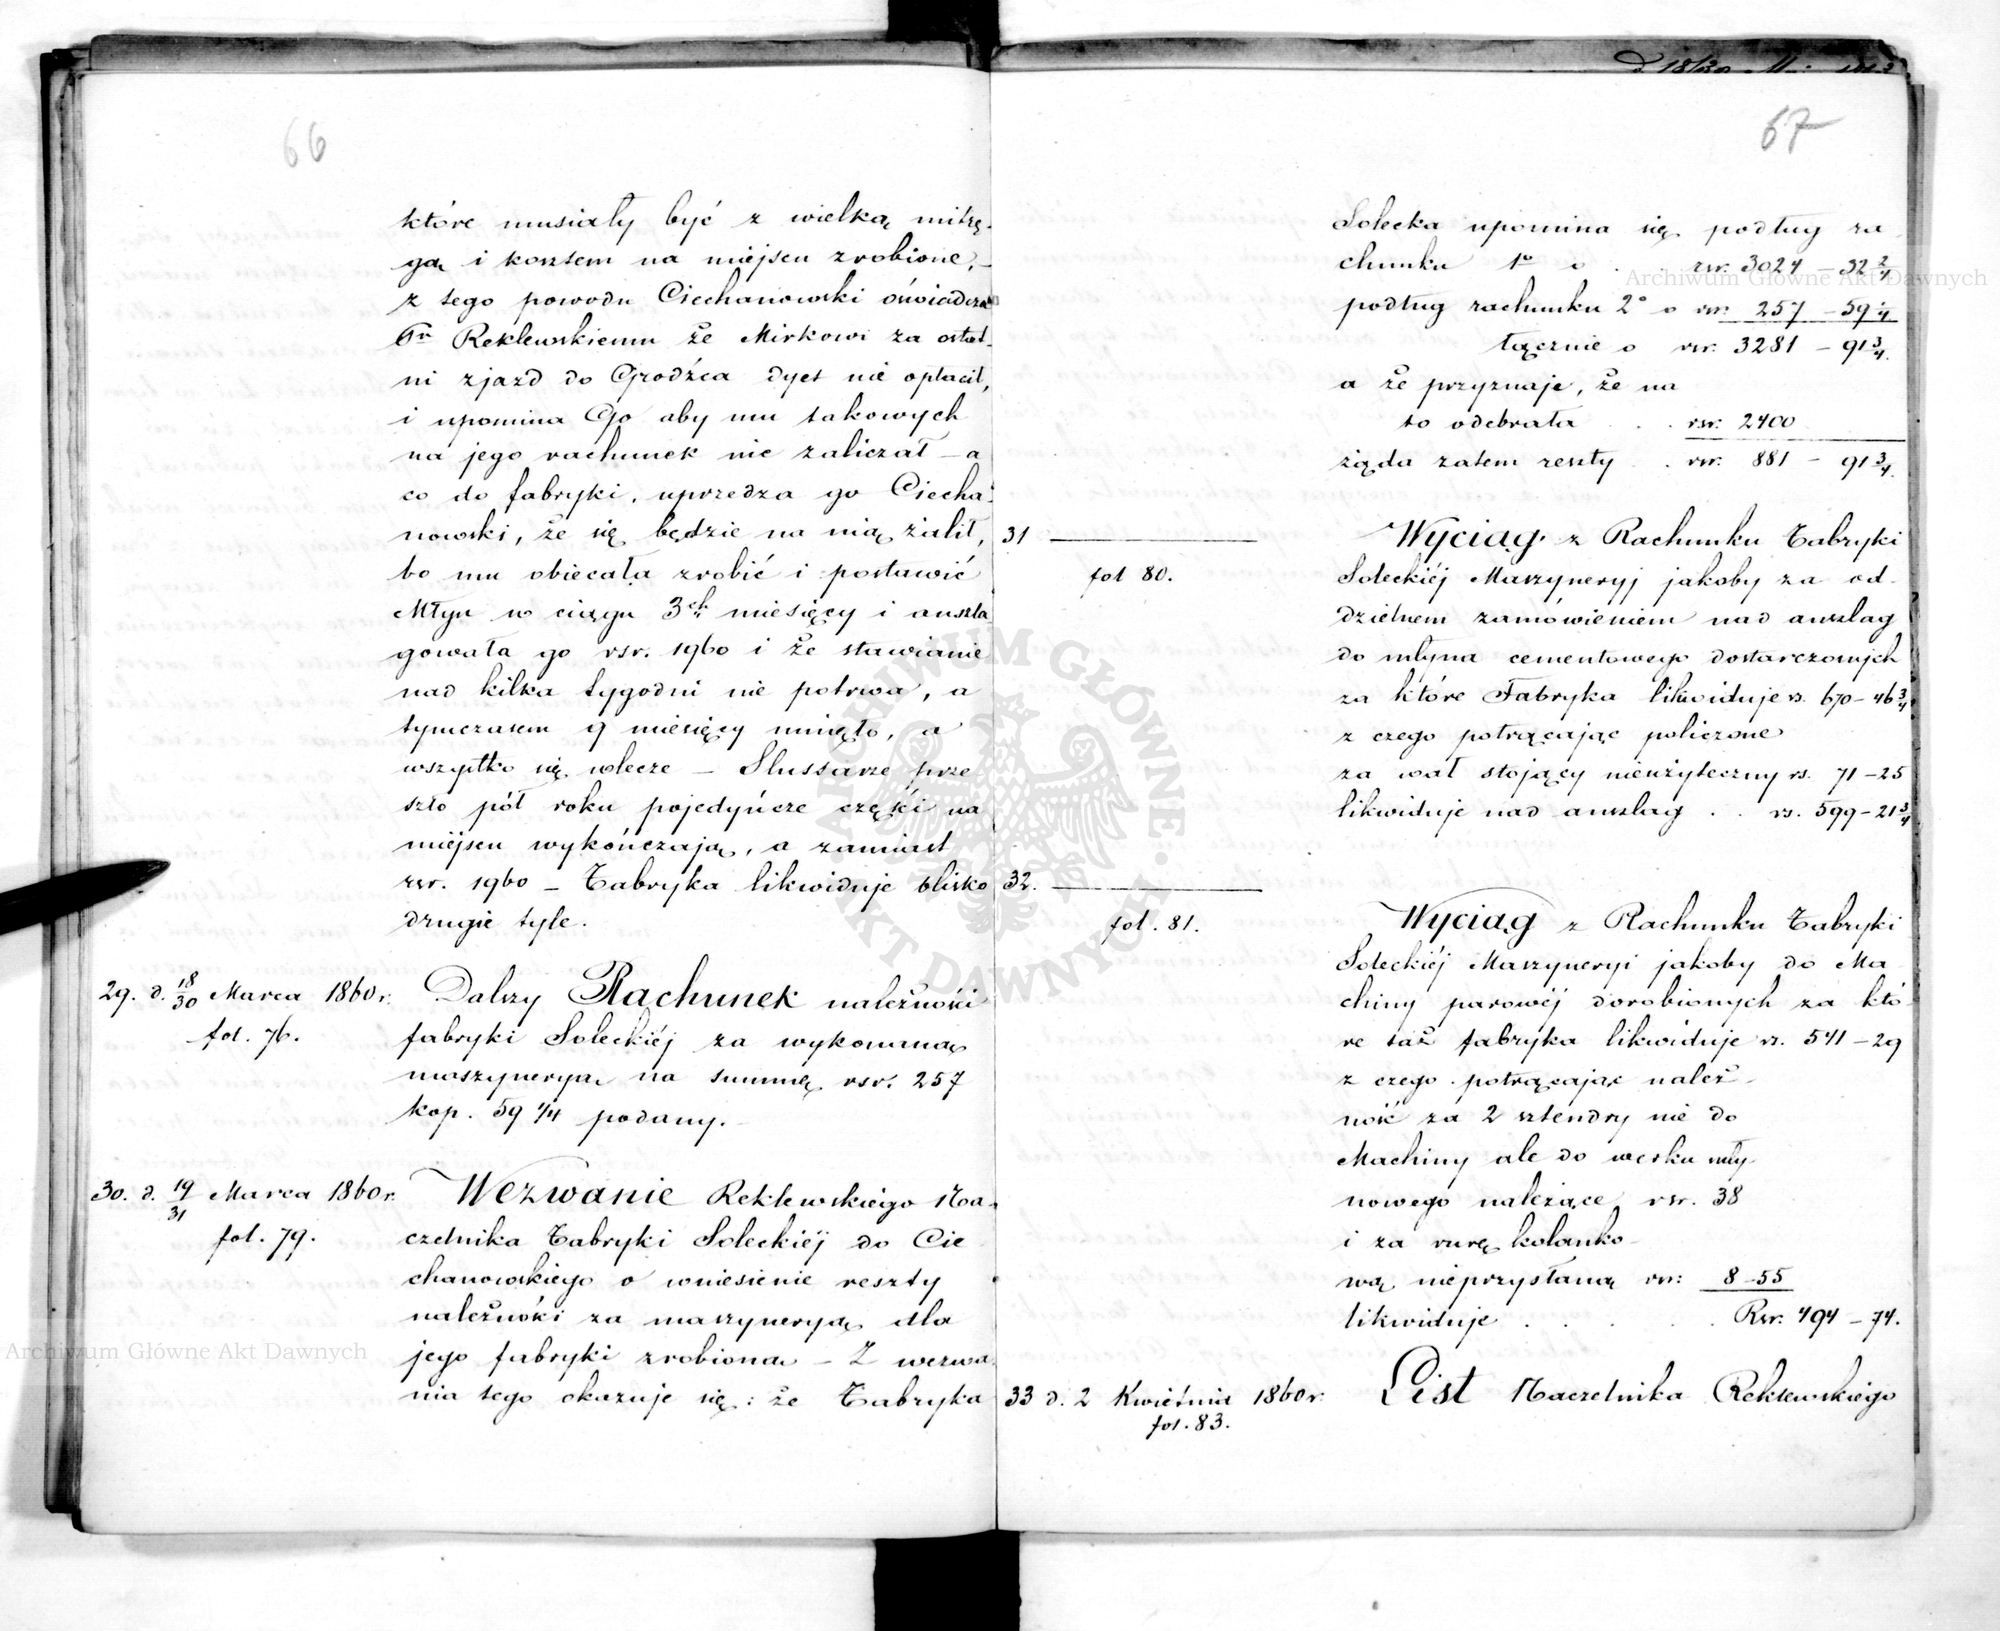 66
które musiały być z wielką mitrę-
gą i kosztem na miejscu zrobione,
z tego powodu Ciechanowski oświadcza
Reklewskiemu że Mirkowi za ostat-
ni zjazd do Grodźca dyet nie opłacił,
i upomina Go aby mu takowych
na jego rachunek nie zaliczał – a
co do fabryki, uprzedza go Ciecha-
nowski, że się będzie na nią żalił,
bo mu obiecała zrobić i postawić
Młyn w ciągu 3ch miesięcy i anszla
gowała go rsr. 1960 i że stawianie
nad kilka tygodni nie potrwa, a
tymczasem 9 miesięcy minęło, a
wszystko się wlecze – Slussarze prze
szło pół roku pojedyńcze części na
miejscu wykończają, a zamiast
rsr. 1960 – Fabryka likwiduje blisko
drugie tyle.
29. d. 18/30 Marca 1860 r.
fol. 76.
Dalszy Rachunek należności
fabryki Soleckiéj za wykonaną
maszyneryą na summę rsr. 257
kop. 59 1/4 podany.
30. d. 19/31 Marca 1860 r.
fol. 79.
Wezwanie Reklewskiego Na-
czelnika Fabryki Soleckiéj do Cie
chanowskiego o wniesienie reszty
należności za maszyneryą dla
jego fabryki zrobioną – Z wezwa
nia tego okazuje się: że Fabryka
67
Solecka upomina się podług ra
chunku 1o o . . rsr. 3024 – 32 2/4
podług rachunku 2o o rsr. 257 – 59 1/4
łącznie o rsr. 3281 – 91 3/4
a że przyznaje, że na
to odebrała . . rsr. 2400
żąda zatem reszty . . rsr. 881 – 91 3/4
31
fol 80.
Wyciąg z Rachunku Fabryki
Soleckiéj Maszyneryj jakoby za od-
dzielnem zamówieniem nad anszlag
do młyna cementowego dostarczonych
za które Fabryka likwiduje rs. 670 – 46 3/4
z czego potrącając policzone
za wał stojący nieużyteczny rs. 71 – 25
likwiduje nad anszlag . . rs. 599 – 21 3/4
32.
fol. 81.
Wyciąg z Rachunku Fabryki
Soleckiéj Maszyneryi jakoby do Ma
chiny parowéj dorobionych za któ
re taż fabryka likwiduje rs. 541 – 29
z czego potrącając należ-
ność za 2 sztendry nie do
Machiny ale do werku mły-
nowego należące rsr. 38
i za rurę kolanko-
wą nieprzysłaną rsr: 8 – 55
likwiduje . . . . . Rsr. 494 – 74.
33 d. 2 Kwietnia 1860 r.
fol. 83.
List Naczelnika Reklewskiego
Archiwum Główne Akt Dawnych
Archiwum Główne Akt Dawnych
ARCHIWUM GŁÓWNE AKT DAWNYCH